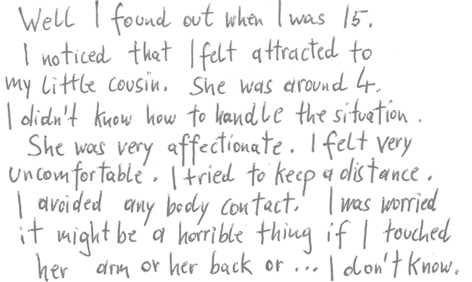 Well I found out when I was 15.
I noticed that I felt attracted to
my little cousin. She was around 4.
I didn't know how to handle the situation.
She was very affectionate. I felt very
uncomfortable. I tried to keep a distance.
I avoided any body contact. I was worried
it might be a horrible thing if I touched
her arm or her back or ... I don't know.